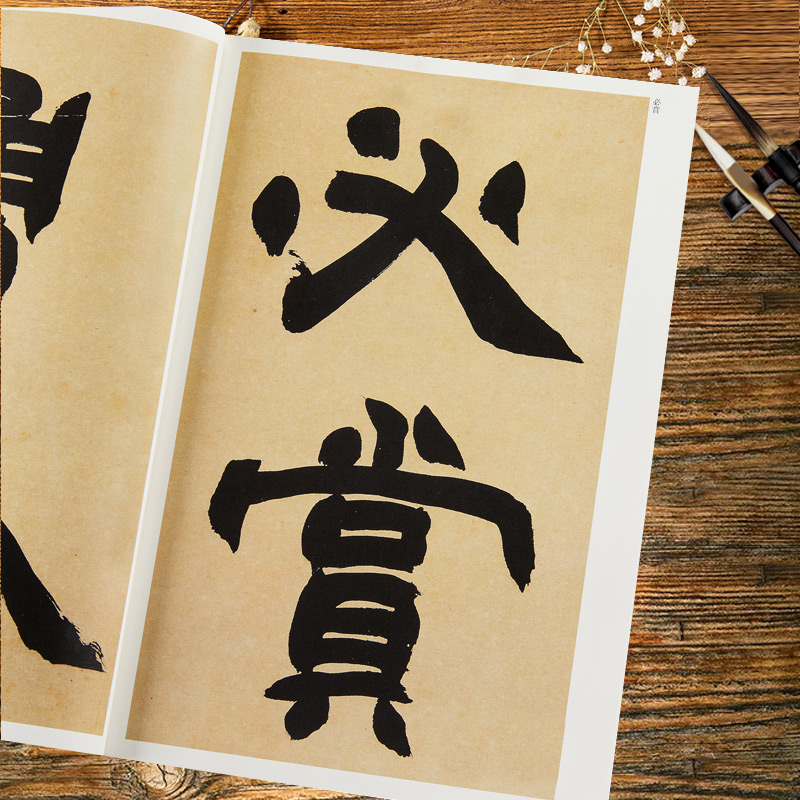 必
賞
必賞